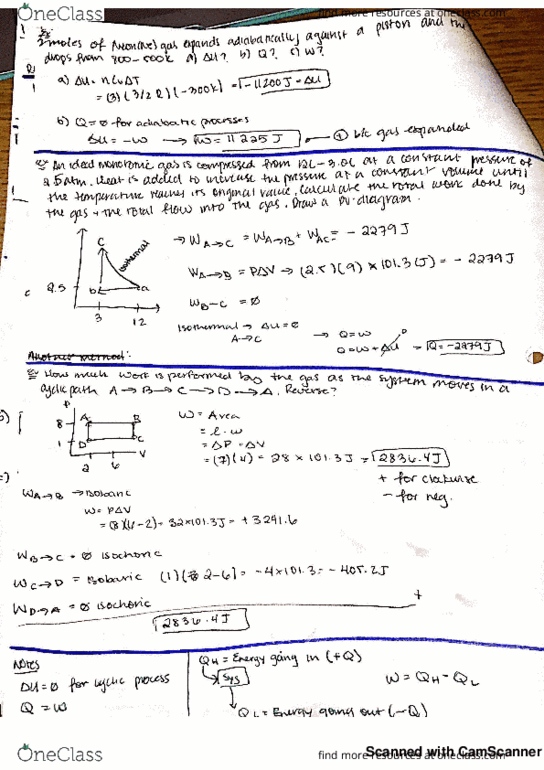 OneClass
find more resources at oneclass.com
3 moles of Neon(Ne) gas expands adiabatically against a piston and the
drops from 800-500K a) ΔU? b) Q? c) W?
a) ΔU = nCvΔT
= (3)(3/2 R)(-300K) = -11200J = ΔU
b) Q = ø for adiabatic processes
ΔU = -W → W = 11225 J ← + b/c gas expanded
Ex An ideal monotomic gas is compressed from 12L-3.0L at a constant pressure of
2.5atm. Heat is added to increase the pressure at a constant volume until
the temperature reaches its original value, calculate the total work done by
the gas + the total flow into the gas. Draw a PV-diagram.
C
isothermal
2.5
b
a
3 12
→ W A→C = W A→B + W AC = -2279J
W A→B = PΔV → (2.5)(9) × 101.3(J) = -2279J
W B-C = ø
Isothermal → ΔU = ø → Q = W
A→C Q = W + ΔU = Q = -2279J
Another method:
Ex How much work is performed by the gas as the system moves in a
cyclic path A → B → C → D → A. Reverse?
P
8 A B
1 D C
2 6 V
W = Area
= l · w
= ΔP · ΔV
= (7)(4) = 28 × 101.3J = 2836.4J
+ for clockwise
- for neg.
W A→B → Isobaric
W = PΔV
= (8)(6-2) = 32×101.3J = +3241.6
W B→C = ø isochoric
W C→D = Isobaric (1)(2-6) = -4×101.3 = -405.2J
W D→A = ø isochoric +
2836.4J
Notes
ΔU = ø for cyclic process
Q = W
QH = Energy going in (+Q)
sys
QL = Energy going out (-Q)
W = QH - QL
Scanned with CamScanner
OneClass
find more resources at oneclass.com